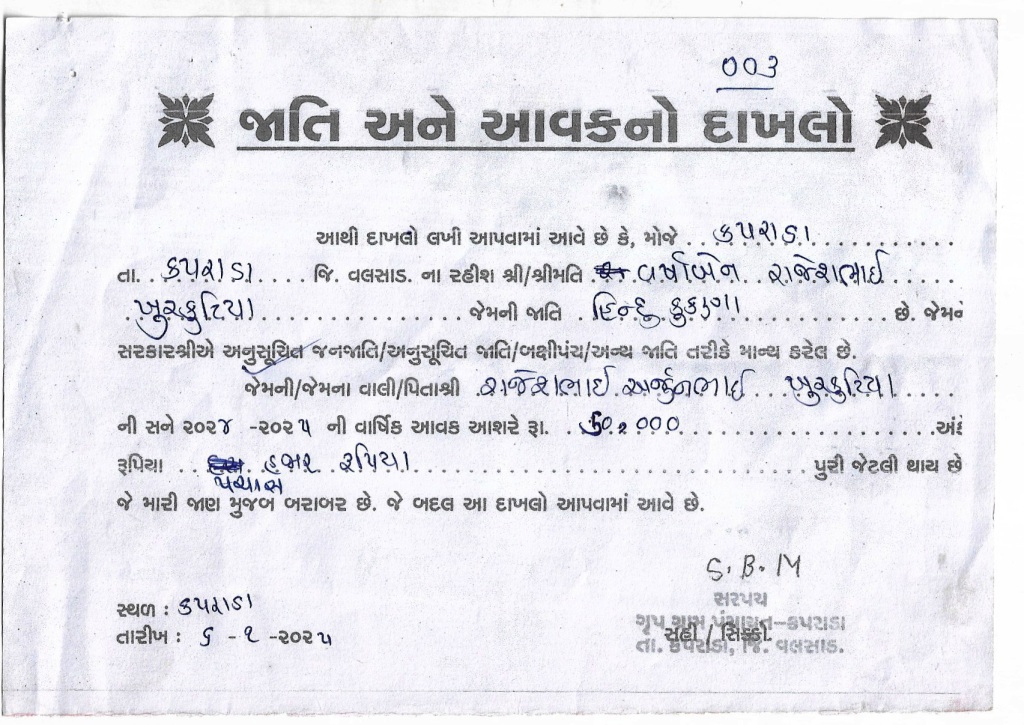 003
જાતિ અને આવકનો દાખલો
આથી દાખલો લખી આપવામાં આવે છે કે, મોજે કપરાડા
તા. કપરાડા જિ. વલસાડ. ના રહીશ શ્રી/શ્રીમતિ વર્ષાબેન રાજેશભાઈ
ખુરકુટિયા જેમની જાતિ હિન્દુ કુકણા છે. જેમન
સરકારશ્રીએ અનુસૂચિત જનજાતિ/અનુસૂચિત જાતિ/બક્ષીપંચ/અન્ય જાતિ તરીકે માન્ય કરેલ છે.
જેમની/જેમના વાલી/પિતાશ્રી રાજેશભાઈ અર્જુનભાઈ ખુરકુટિયા
ની સને ૨૦૨૪ -૨૦૨૫ ની વાર્ષિક આવક આશરે રૂા. 000 અંકે
રૂપિયા હજાર રૂપિયા પુરી જેટલી થાય છે
પચાસ
જે મારી જાણ મુજબ બરાબર છે. જે બદલ આ દાખલો આપવામાં આવે છે.
S. B. M
સ્થળ : કપરાડા
સરપંચ
ગૃપ ગ્રામ પંચાયત-કપરાડા
તારીખ : ૬ - ૧ -૨૦૨૫
સહી / સિક્કો.
તા. કપરાડા, જિ. વલસાડ.